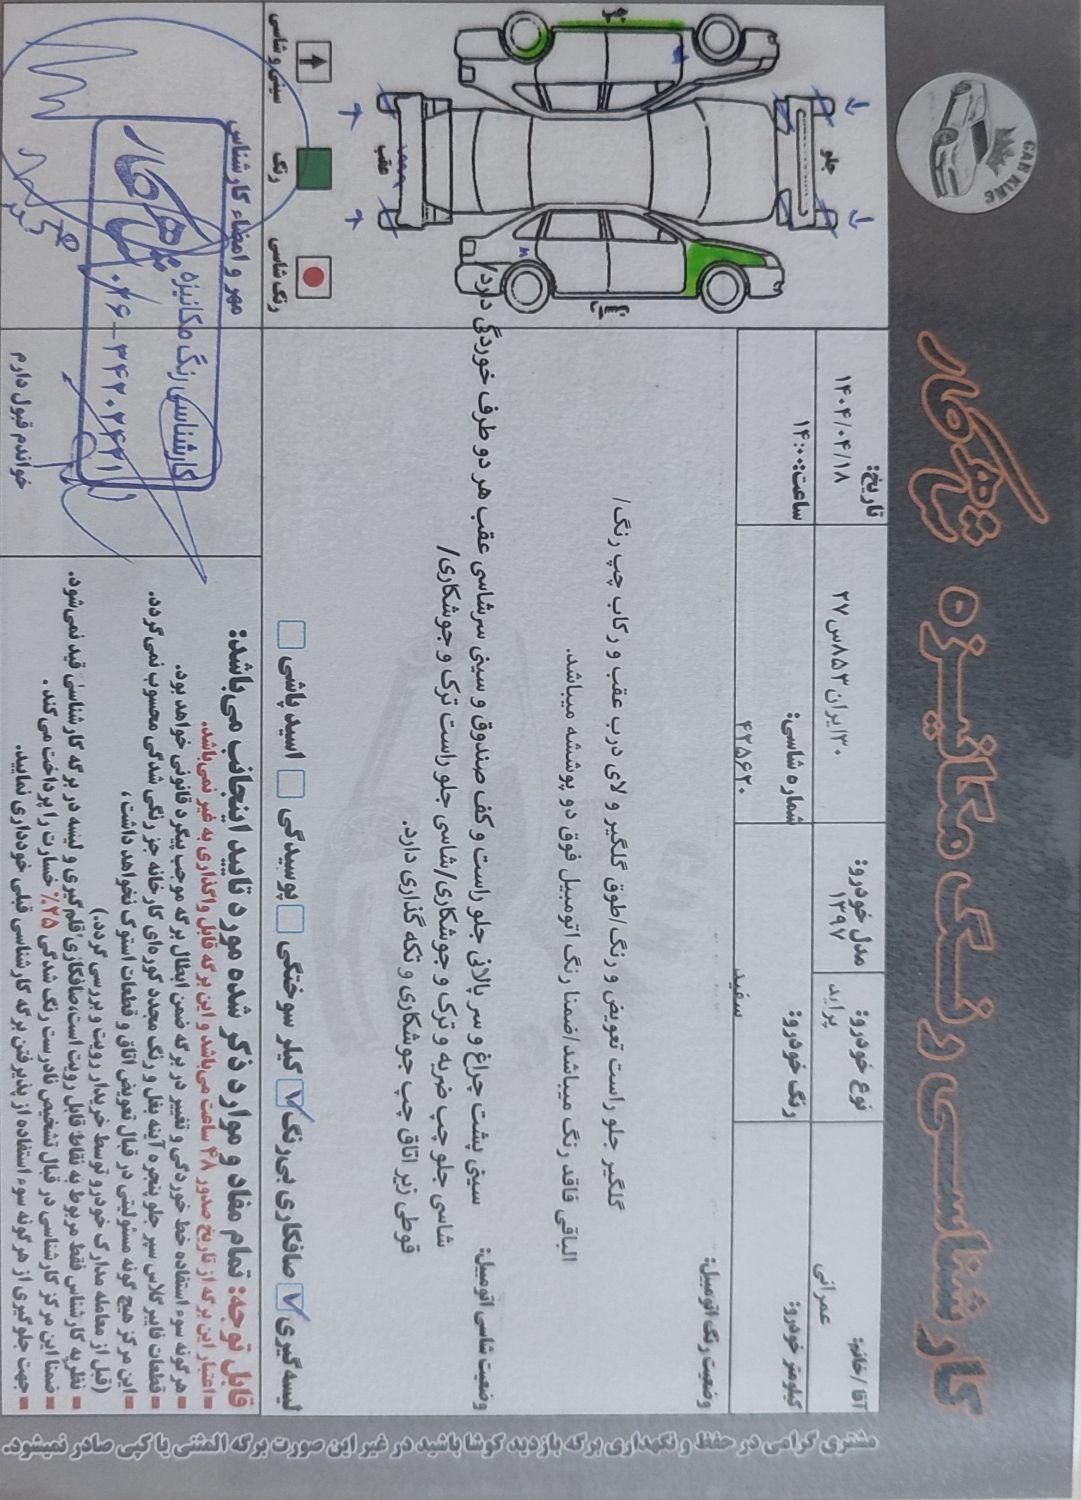 کارشناسی رنگ مکانیزه شاهکار
CAR KING
آقا/خانم: عمرانی
نوع خودرو: پراید
مدل خودرو: ۱۳۹۷
۳۰ایران۸۵۳س۲۷
تاریخ: ۱۴۰۴/۰۴/۱۸
کیلومتر خودرو:
رنگ خودرو: سفید
شماره شاسی: ۴۲۵۶۲۰
ساعت: ۱۴:۰۰
وضعیت رنگ اتومبیل:
گلگیر جلو راست تعویض و رنگ/طوق گلگیر و لای درب عقب و رکاب چپ رنگ/
الباقی فاقد رنگ میباشد/ضمنا رنگ اتومبیل فوق دو پوششه میباشد.
وضعیت شاسی اتومبیل: سینی پشت چراغ و سر پالانی جلو راست و کف صندوق و سینی سرشاسی عقب هر دو طرف خوردگی دارد/
شاسی جلو چپ ضربه و ترک و جوشکاری/شاسی جلو راست ترک و جوشکاری/
قوطی زیر اتاق چپ جوشکاری و تکه گذاری دارد.
لیسه گیری صافکاری بی‌رنگ کیلر سوختگی پوسیدگی اسید پاشی
جلو
عقب
سینی و شاسی
رنگ
رنگ شاسی
قابل توجه: تمام مفاد و موارد ذکر شده مورد تایید اینجانب می‌باشد:
اعتبار این برگه از تاریخ صدور ۴۸ ساعت می‌باشد و این برگه قابل واگذاری به غیر نمی‌باشد.
هرگونه سوء استفاده خط خوردگی و تغییر در برگه ضمن ابطال برگه موجب پیگرد قانونی خواهد بود.
قطعات فایبرگلاس سپر جلو پنجره آینه بغل و رنگ مجدد کوره‌ای کارخانه جز رنگی شدگی محسوب نمی‌گردد.
این مرکز هیچ گونه مسئولیتی در قبال تعویض اتاق و قطعات استوک نخواهد داشت،
(قبل از معامله مدارک خودرو توسط خریدار رویت و بررسی گردد.)
نظریه کارشناس فقط مربوط به نقاط قابل رویت است،صافکاری،قلم گیری و لیسه در برگه کارشناسی قید نمی‌شود.
ضمنا این مرکز کارشناسی در قبال تشخیص نادرست رنگ شدگی ۲۵% خسارت را پرداخت می‌کند.
جهت جلوگیری از هرگونه سوء استفاده از پذیرفتن برگه کارشناسی قبلی خودداری نمایید.
مهر و امضاء کارشناس
کارشناسی رنگ مکانیزه
شاهکار
۰۲۶-۳۴۲۰۲۴۴۱
خواندم قبول دارم
مشتری گرامی در حفظ و نگهداری برگه بازدید کوشا باشید در غیر این صورت برگه المثنی یا کپی صادر نمیشود.